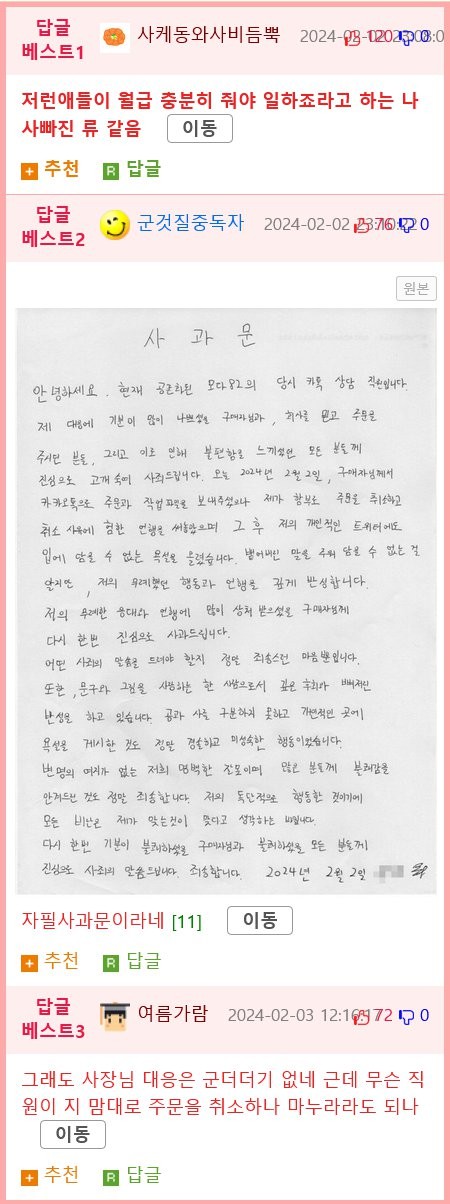 답글
베스트1
사케동와사비듬뿍
120 0
저런애들이 월급 충분히 줘야 일하죠라고 하는 나
사빠진 류 같음 이동
추천 R 답글
답글
베스트2
군것질중독자 2024-02-02 76 0
원본
사 과 문
안녕하세요. 현재 공론화된 모다82의 당시 카톡 상담 직원입니다.
제 대응에 기분이 많이 나쁘셨을 구매자님과, 회사를 믿고 주문을
주시던 분들, 그리고 이로 인해 불편함을 느끼셨던 모든 분들께
진심으로 고개 숙여 사죄드립니다. 오늘 2024년 2월 2일, 구매자님께서
카카오톡으로 주문과 작업파일을 보내주셨으나 제가 함부로 주문을 취소하고
취소 사유에 험한 언행을 써놓았으며 그 후 저의 개인적인 트위터에도
입에 담을 수 없는 욕설을 올렸습니다. 뱉어내진 말을 주워 담을 수 없는 걸
알지만, 저의 무례했던 행동과 언행을 깊게 반성합니다.
저의 무례한 응대와 언행에 많이 상처 받으셨을 구매자님께
다시 한번 진심으로 사과드립니다.
어떤 사죄의 말씀을 드려야 할지 정말 죄송스런 마음뿐입니다.
또한, 문구와 그림을 사랑하는 한 사람으로서 깊은 후회와 뼈저린
반성을 하고 있습니다. 공과 사를 구분하지 못하고 개인적인 곳에
욕설을 게시한 것도 정말 경솔하고 미성숙한 행동이었습니다.
변명의 여지가 없는 저희 명백한 잘못이며 많은 분들께 불쾌감을
안겨드린 것도 정말 죄송합니다. 저의 독단적으로 행동한 것이기에
모든 비난은 제가 맞는것이 맞다고 생각하는 바입니다.
다시 한번 기분이 불쾌하셨을 구매자님과 불쾌하셨을 모든 분들께
진심으로 사죄의 말씀드립니다. 죄송합니다. 2024년 2월 2일
자필사과문이라네 [11] 이동
추천 R 답글
답글
베스트3
여름가람 2024-02-03 72 0
그래도 사장님 대응은 군더더기 없네 근데 무슨 직
원이 지 맘대로 주문을 취소하나 마누라라도 되나
이동
추천 R 답글